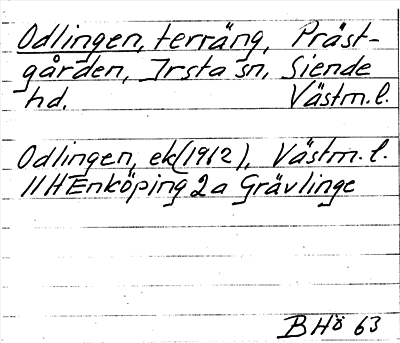 Odlingen, terräng, Präst-
gården, Irsta sn, Siende
hd. Västm.l.
Odlingen, ek(1912), Västm.l.
11HEnköping 2a Grävlinge
BHö 63